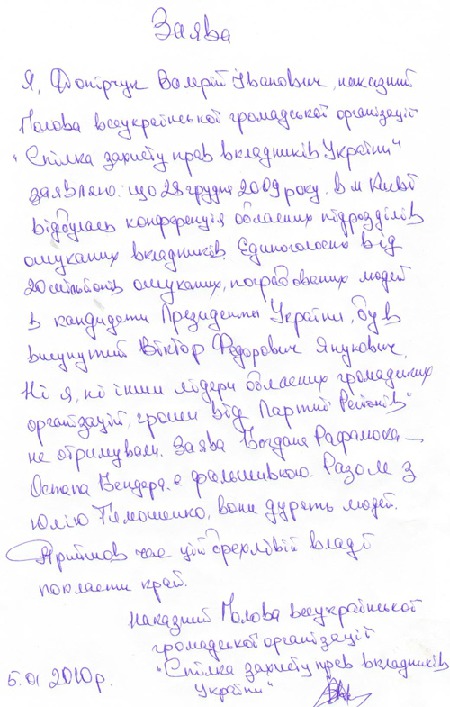 Заява
Я, Валерій Іванович, наказний
Голова всеукраїнської громадської організації
"Спілка захисту прав вкладників України"
заявляю: що 28 грудня 2009 року. в м Києві
відбулась конференція обласних підрозділів
ошуканих вкладників Єдиноголосно від
20 мільйонів ошуканих, пограбованих людей
в кандидати Президента України, був
висунутий Віктор Федорович Янукович.
Ні я, ні інши лідери обласних громадських
організацій, гроши від Партиї Регіонів"
не отримували. Заява Богдана –
Остапа Бендера є фальшивкою Разом з
Юлію Тимошенко, вони дурять людей.
Прийшов час цій брехливій владі
покласти край.
Наказний Голова всеукраїнської
громадської організації
"Спілка захисту прав вкладників
України"
5.01 2010р.